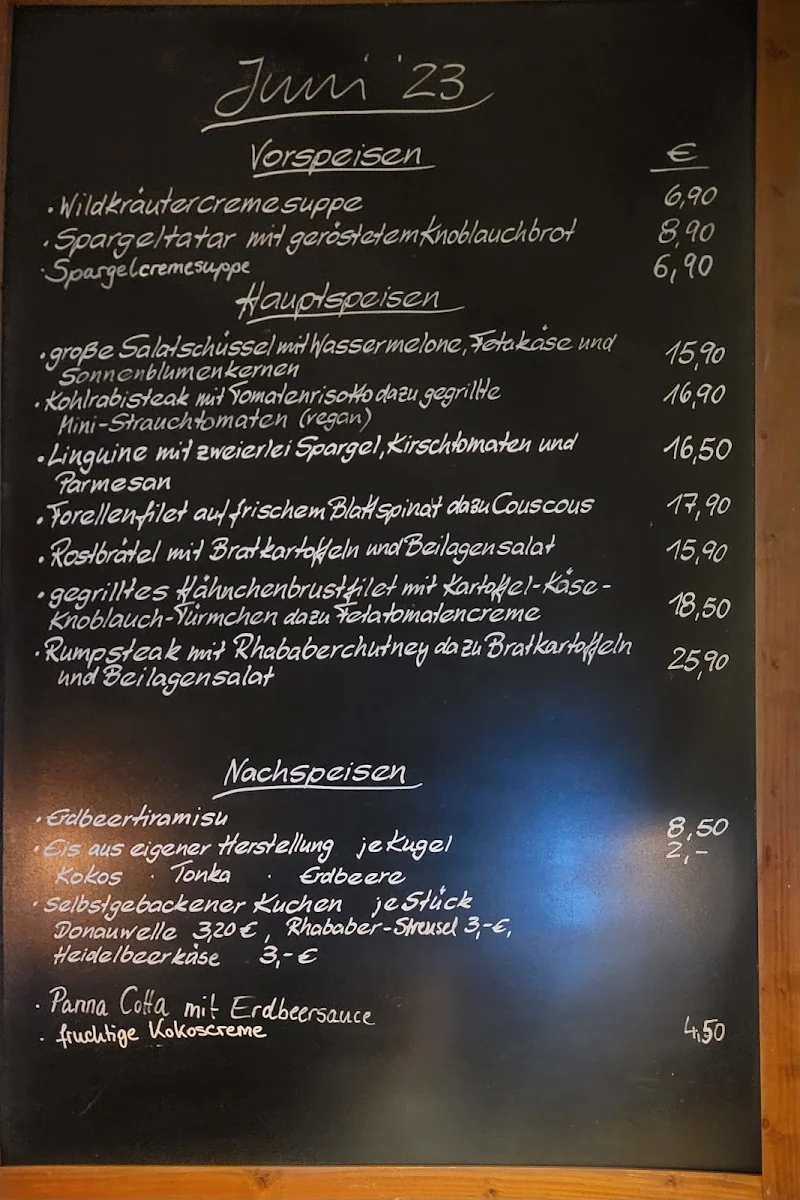 Juni '23
Vorspeisen €
· Wildkräutercremesuppe 6,90
· Spargeltatar mit geröstetem Knoblauchbrot 8,90
· Spargelcremesuppe 6,90
Hauptspeisen
· große Salatschüssel mit Wassermelone, Fetakäse und 15,90
Sonnenblumenkernen
· Kohlrabisteak mit Tomatenrisotto dazu gegrillte 16,90
Mini-Strauchtomaten (vegan)
· Linguine mit zweierlei Spargel, Kirschtomaten und 16,50
Parmesan
· Forellenfilet auf frischem Blattspinat dazu Couscous 17,90
· Rostbrätel mit Bratkartoffeln und Beilagensalat 15,90
· gegrilltes Hähnchenbrustfilet mit Kartoffel-Käse-
Knoblauch-Türmchen dazu Fetatomatencreme 18,50
· Rumpsteak mit Rhababerchutney dazu Bratkartoffeln 25,90
und Beilagensalat
Nachspeisen
· Erdbeertiramisu 8,50
· Eis aus eigener Herstellung je Kugel 2,-
Kokos · Tonka · Erdbeere
· Selbstgebackener Kuchen je Stück
Donauwelle 3,20 €, Rhababer-Streusel 3,-€,
Heidelbeerkäse 3,-€
· Panna Cotta mit Erdbeersauce
· fruchtige Kokoscreme 4,50